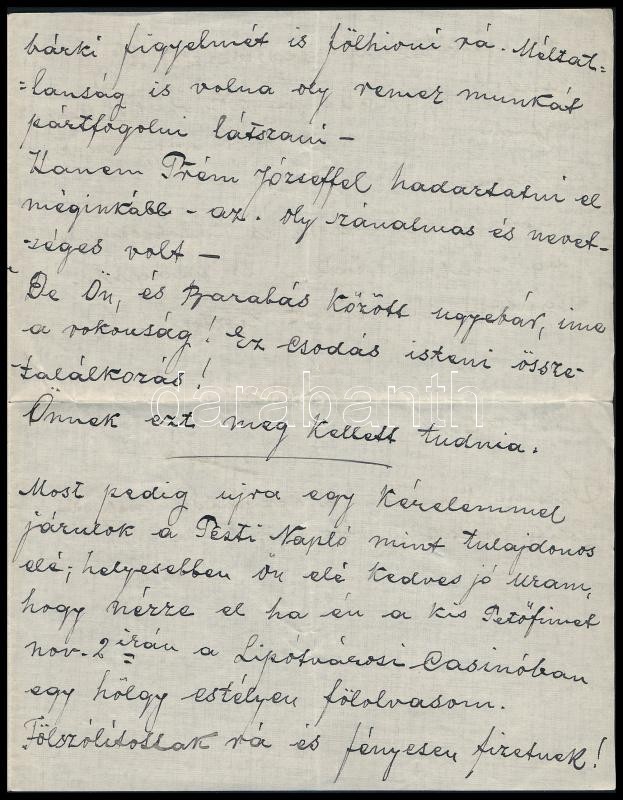 bárki figyelmét is fölhivni rá. Méltat=
=lanság is volna oly remez munkát
pártfogolni látszani –
Hanem Prém Józseffel hadartatni el
méginkább – az. oly szánalmas és nevet-
-séges volt –
De Ön, és Barabás között ugyebár, ime
a rokonság! Ez csodás isteni össze-
találkozás!
darabanth
Önnek ezt meg kellett tudnia.
Most pedig ujra egy kérelemmel
járulok a Pesti Napló mint tulajdonos
elé; helyesebben Ön elé kedves jó Uram,
hogy nézze el ha én a kis Petőfimet
nov. 2 irán a Lipótvárosi Casinóban
egy hölgy estélyen fölolvasom.
Fölszólitottak rá és fényesen fizetnek!